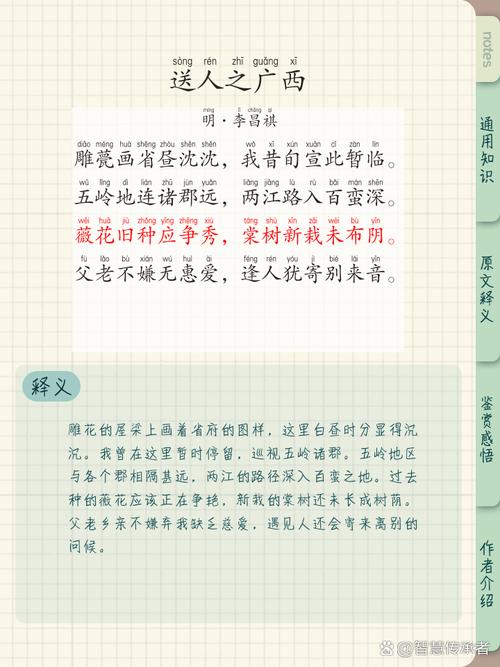 sòng rén zhī guǎng xī
送人之广西
míng lǐ chāng qí
明·李昌祺
diāo méng huà shěng zhòu shěn shěn wǒ xī xuān cǐ zàn lín
雕甍画省昼沈沈，我昔旬宣此暂临。
wǔ lǐng dì lián zhū jùn yuǎn liǎng jiāng lù rù bǎi mán shēn
五岭地连诸郡远，两江路入百蛮深。
wēi huā jiù zhǒng yīng zhēng xiù táng shù xīn zāi wèi bù yīn
薇花旧种应争秀，棠树新栽未布阴。
fù lǎo bù xián wú huì ài féng rén yóu jì bié lái yīn
父老不嫌无惠爱，逢人犹寄别来音。
释义
雕花的屋梁上画着省府的图样，这里白昼时分显得沉
沉。我曾在这里暂时停留，巡视五岭诸郡。五岭地区
与各个郡相隔甚远，两江的路径深入百蛮之地。过去
种的薇花应该正在争艳，新栽的棠树还未长成树荫。
父老乡亲不嫌弃我缺乏慈爱，遇见人还会寄来离别的
问候。
notes
通用知识
原文释义
鉴赏感悟
作者介绍
智慧传承者